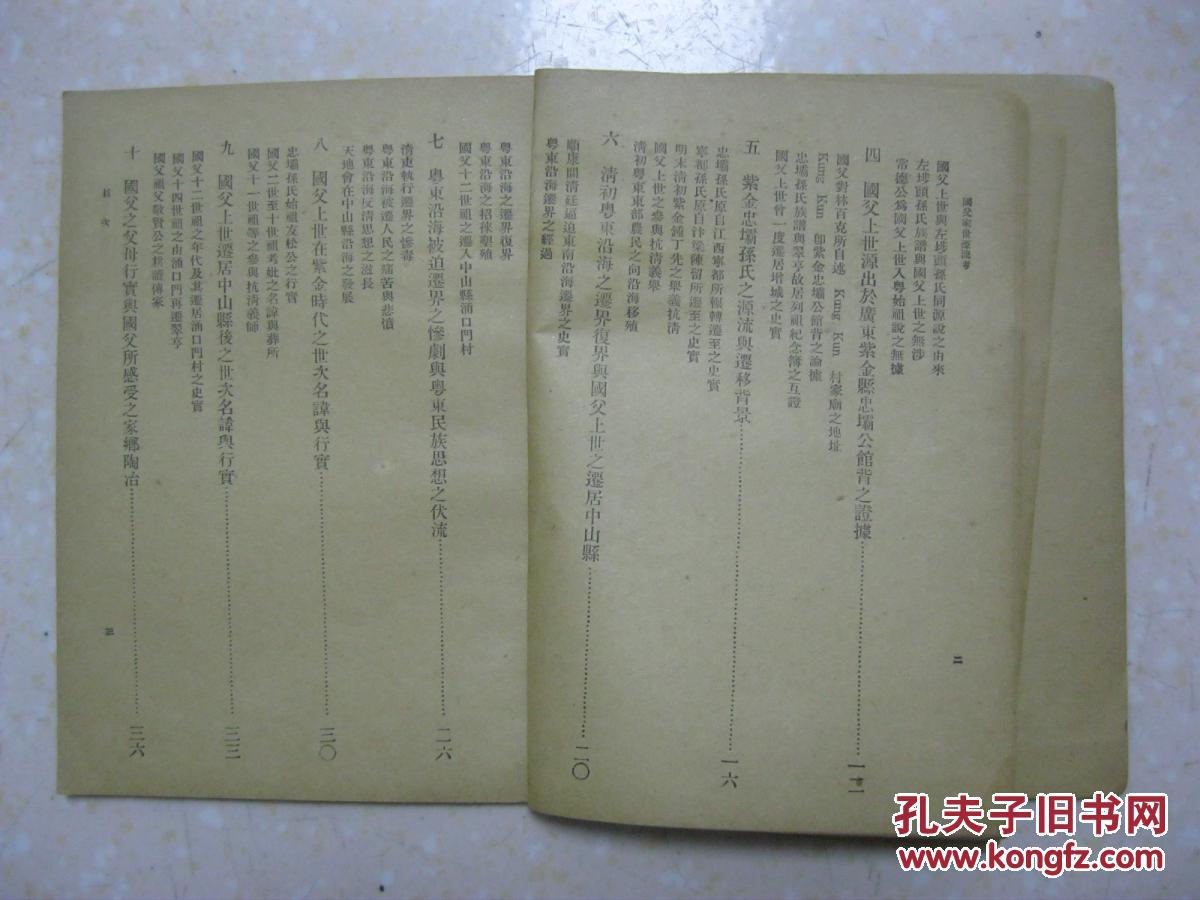 國父家世源流考
國父上世與左埗頭孫氏同源說之由來
左埗頭孫氏族譜與國父上世之無涉
常德公為國父上世入粵始祖說之無據
四 國父上世源出於廣東紫金縣忠壩公館背之證據 一二
國父對林百克所自述 Kung Kun 村家廟之地址
Kung Kun 卽紫金忠壩公館背之論據
忠壩孫氏族譜與翠亨故居列祖紀念簿之互證
國父上世曾一度遷居增城之史實
五 紫金忠壩孫氏之源流與遷移背景 一六
忠壩孫氏原自江西寧都所輾轉遷至之史實
寧都孫氏原自汴梁陳留所遷至之史實
明末清初紫金鍾丁先之舉義抗清
國父上世之參與抗清義舉
清初粵東東部農民之向沿海移殖
六 清初粵東沿海之遷界復界與國父上世之遷居中山縣 二〇
順康間清廷逼迫東南沿海遷界之史實
粵東沿海遷界之經過
二
粵東沿海之遷界復界
粵東沿海之招徠墾殖
國父十二世祖之遷入中山縣涌口門村
七 粵東沿海被迫遷界之慘劇與粵東民族思想之伏流 二六
清吏執行遷界之慘毒
粵東沿海被遷人民之痛苦與悲憤
粵東沿海反清思想之滋長
天地會在中山縣沿海之發展
八 國父上世在紫金時代之世次名諱與行實 三〇
忠壩孫氏始祖友松公之行實
國父二世至十世祖考妣之名諱與葬所
國父十一世祖等之參與抗清義師
九 國父上世遷居中山縣後之世次名諱與行實 三三
國父十二世祖之年代及其遷居涌口門村之史實
國父十四世祖之由涌口門再遷翠亨
國父祖父敬賢公之耕讀傳家
十 國父之父母行實與國父所感受之家鄉陶冶 三六
目次
三
孔夫子旧书网
www.kongfz.com